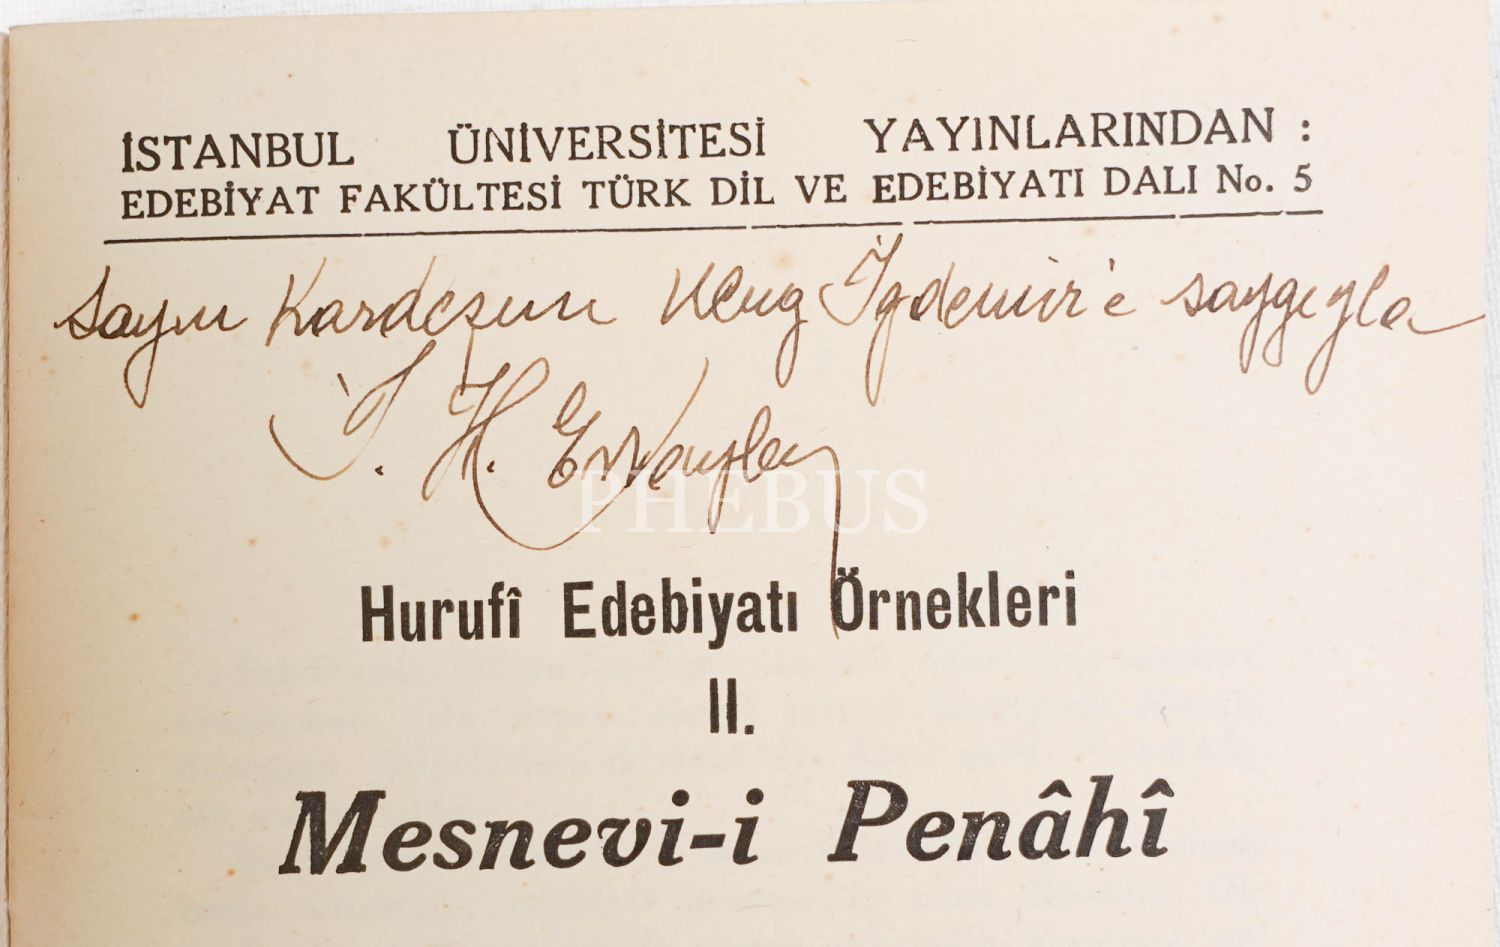 İSTANBUL ÜNİVERSİTESİ YAYINLARINDAN :
EDEBİYAT FAKÜLTESİ TÜRK DİL VE EDEBİYATI DALI No. 5
Sayın Kardeşim Uluğ İğdemir'e saygıyla
İ. H. Ertaylan
PHEBUS
Hurufî Edebiyatı Örnekleri
II.
Mesnevi-i Penâhî